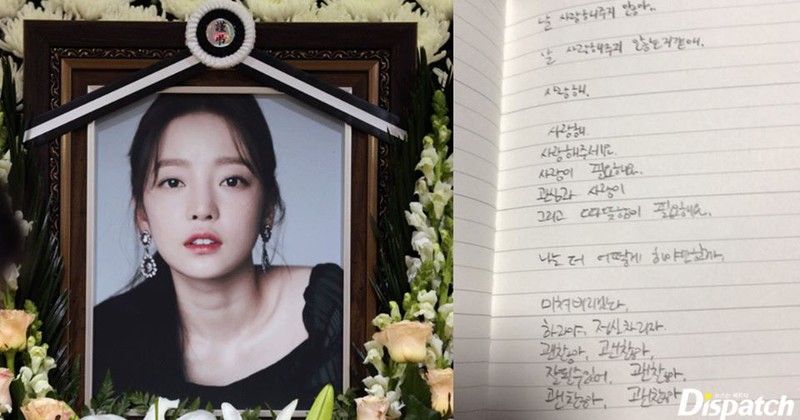 謹弔
날 사랑해주지 않아..
날 사랑해주지 않는거같애.
사랑해.
사랑해.
사랑해주세요.
사랑이 필요해요.
관심과 사랑이
그리고 따뜻함이 필요해요.
나는 더 어떻게 해야만할까.
미쳐버리겠다.
하라야, 정신차리자.
괜찮아, 괜찮아,
잘될수있어, 괜찮아.
괜찮아, 괜찮아.
뉴스는 팩트다
Dispatch